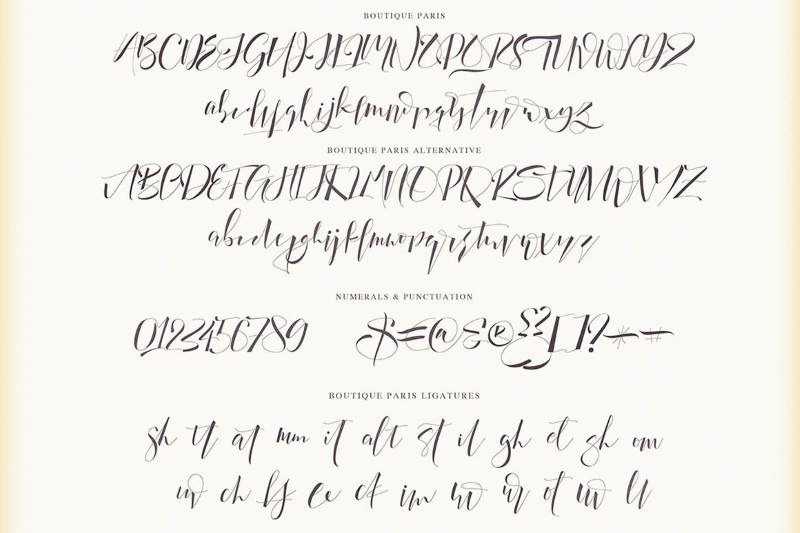 BOUTIQUE PARIS
ABCDEFGHIJKLMNOPQRSTUVWXYZ
abcdefghijklmnopqrstuvwxyz
BOUTIQUE PARIS ALTERNATIVE
ABCDEFGHIJKLMNOPQRSTUVWXYZ
abcdefghijklmnopqrstuvwxyz
NUMERALS & PUNCTUATION
0123456789
BOUTIQUE PARIS LIGATURES
sh tt at mm it alt st il gh et sh om
ch ct im of ll